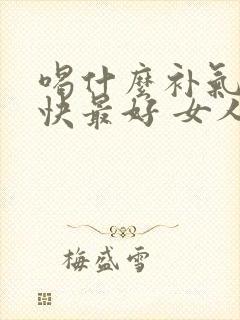 喝什麼补氣
快最好 女人
梅盛雪